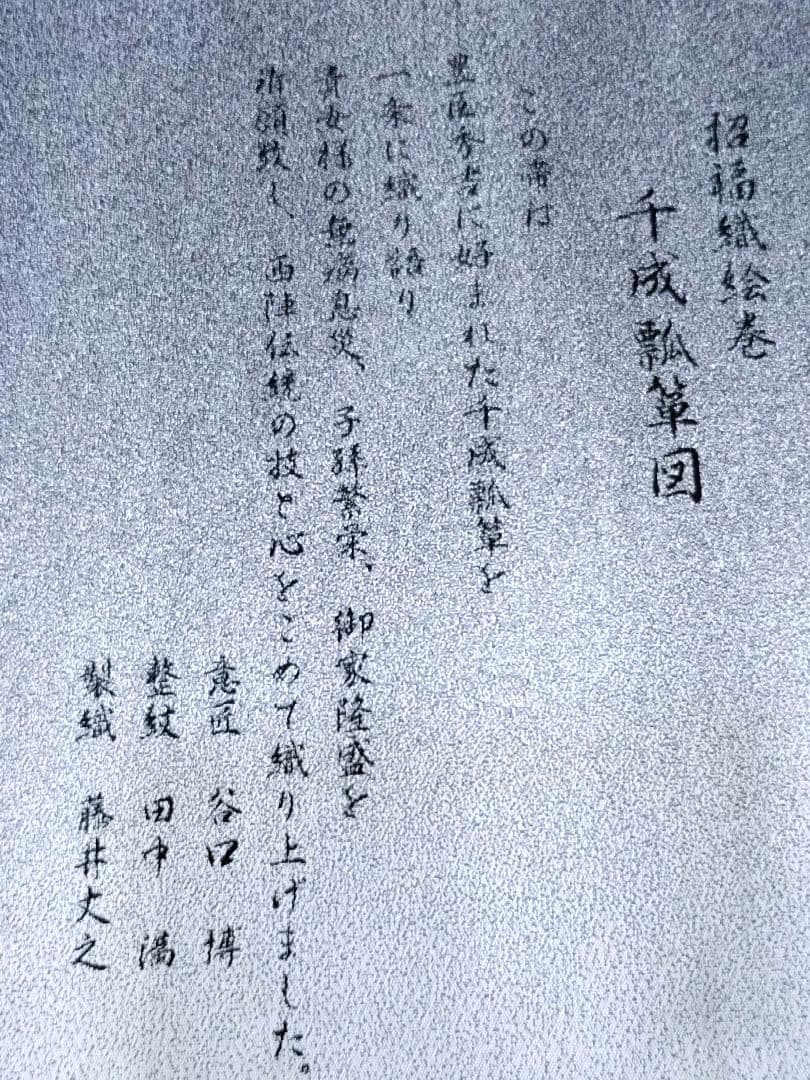 招福織絵巻
千成瓢箪図
この帯は
豊臣秀吉に好まれた千成瓢箪を
一条に織り語り
貴女様の無病息災、子孫繁栄、御家隆盛を
祈願致し、西陣伝統の技と心をこめて織り上げました。
意匠 谷口 博
整紋 田中 満
製織 藤井丈之